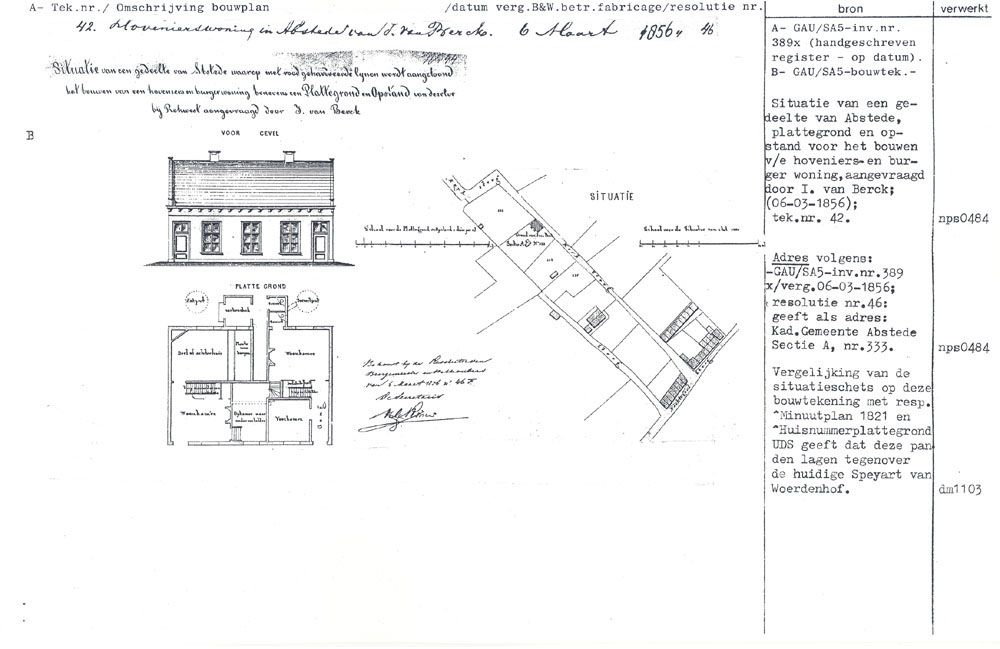 A- Tek.nr./ Omschrijving bouwplan /datum verg.B&W.betr.fabricage/resolutie nr.
42. Hovenierswoning in Abstede van J. van Berck. 6 Maart 1856 46
Situatie van een gedeelte van Abstede waarop met rood gekarteerde lynen wordt aangetoond
het bouwen van een hovenier en burgerwoning benevens een Plattegrond en Opstand van dezelve
bij Rekwest aangevraagd door I. van Berck
B
VOOR GEVEL
PLATTE GROND
Woonkamer
Woonkamer
Voorkamer
SITUATIE
Sectie A N° 333
Behoort bij de Resolutie van
Burgemeester en Wethouders
van 6 Maart 1856 N° 46
De Secretaris
bron
A- GAU/SA5-inv.nr.
389x (handgeschreven
register - op datum).
B- GAU/SA5-bouwtek.-
Situatie van een ge-
deelte van Abstede,
plattegrond en op-
stand voor het bouwen
v/e hoveniers- en bur-
ger woning,aangevraagd
door I. van Berck;
(06-03-1856);
tek.nr. 42.
Adres volgens:
-GAU/SA5-inv.nr.389
x/verg.06-03-1856;
resolutie nr.46:
geeft als adres:
Kad.Gemeente Abstede
Sectie A, nr.333.
Vergelijking van de
situatieschets op deze
bouwtekening met resp.
^Minuutplan 1821 en
^Huisnummerplattegrond
UDS geeft dat deze pan
den lagen tegenover
de huidige Speyart van
Woerdenhof.
verwerkt
nps0484
nps0484
dm1103